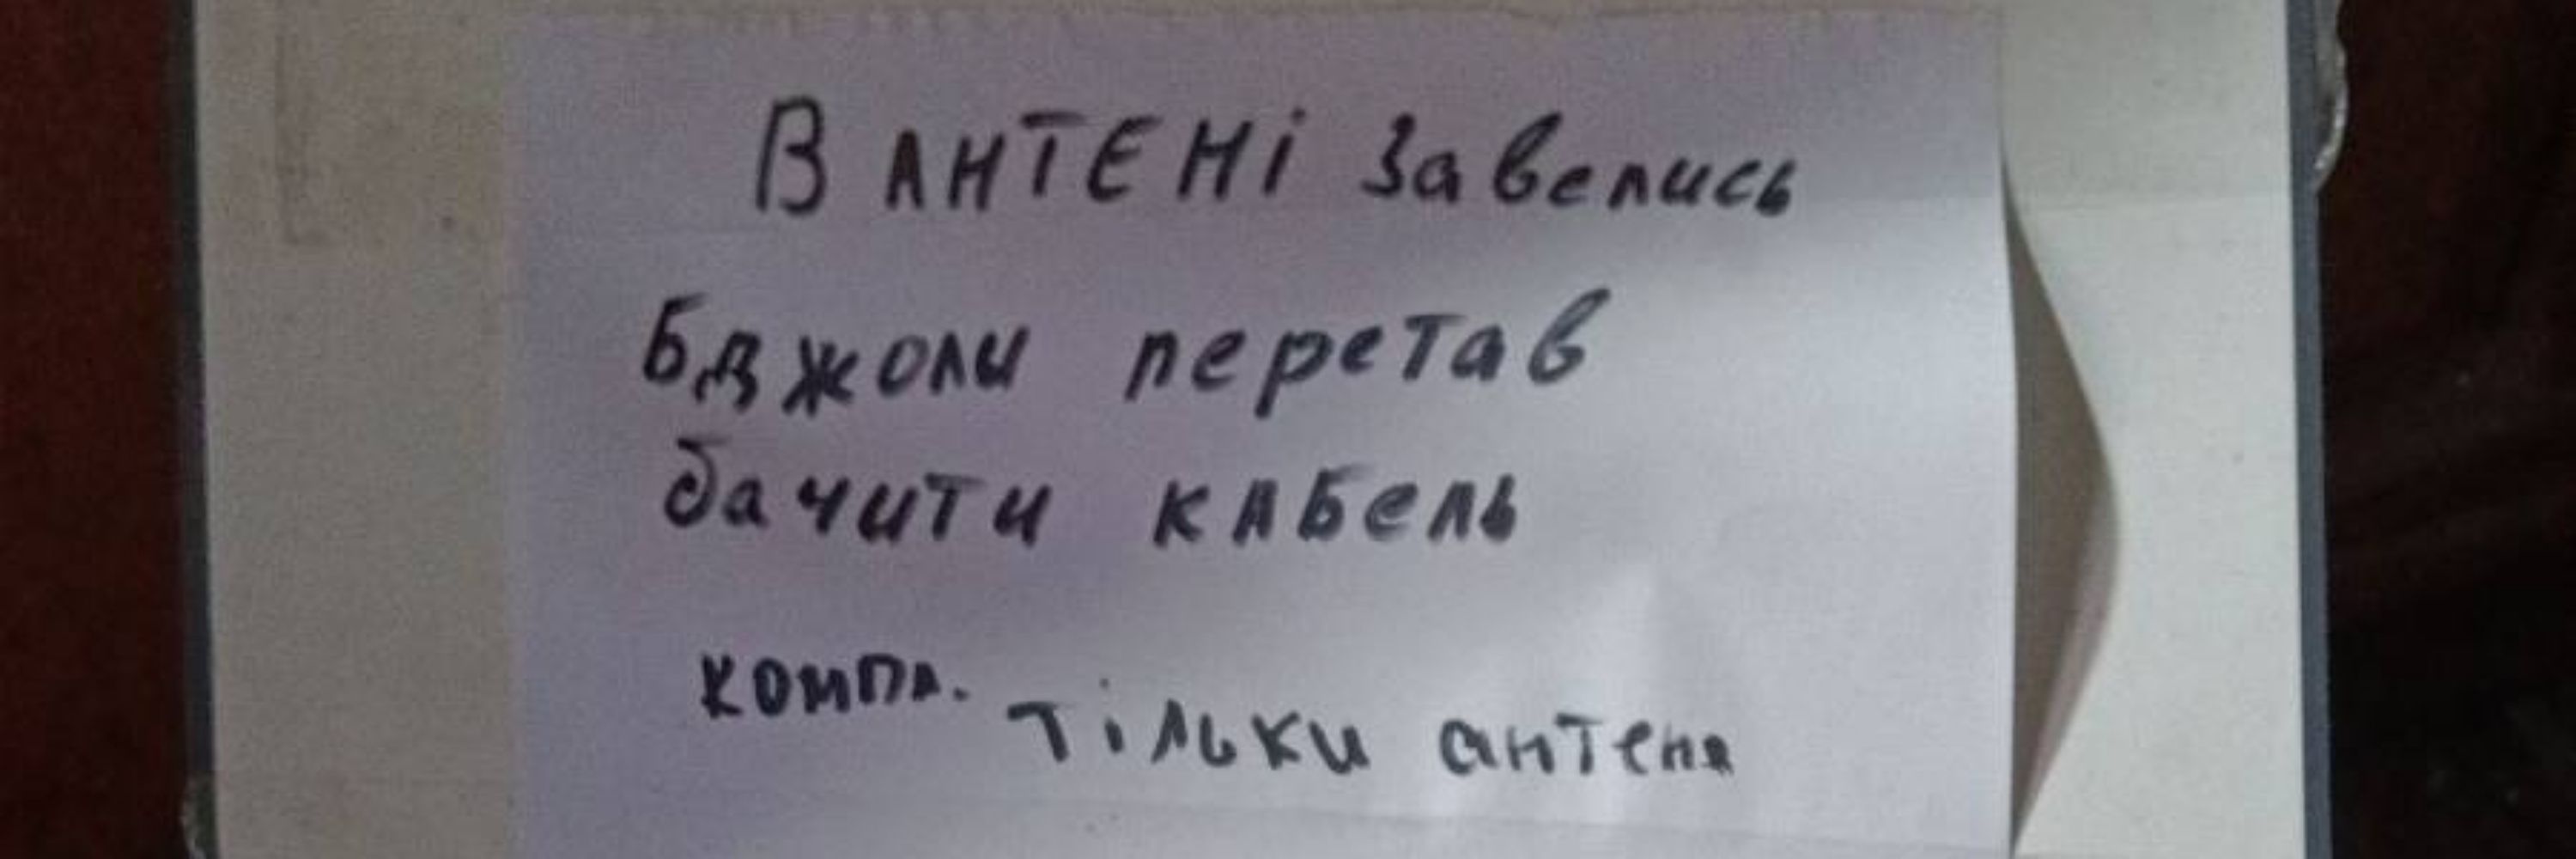 В АНТЕНі Завелись
Бджоли перетав
бачити кабель
компл. тільки антена